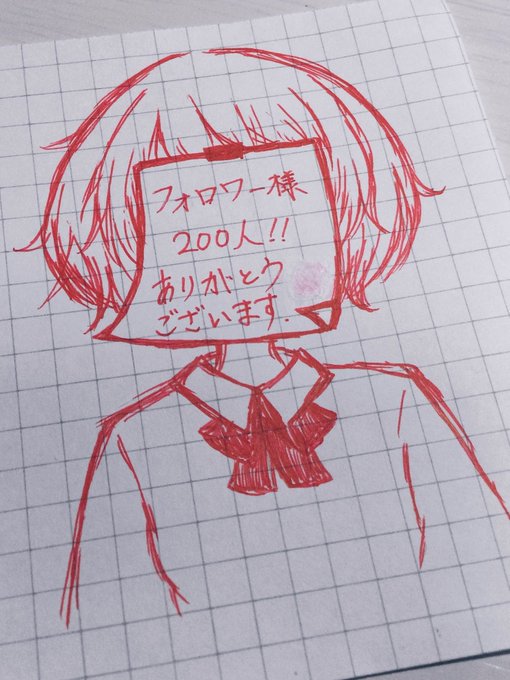 フォロワー様
200人!!
ありがとう
ございます.